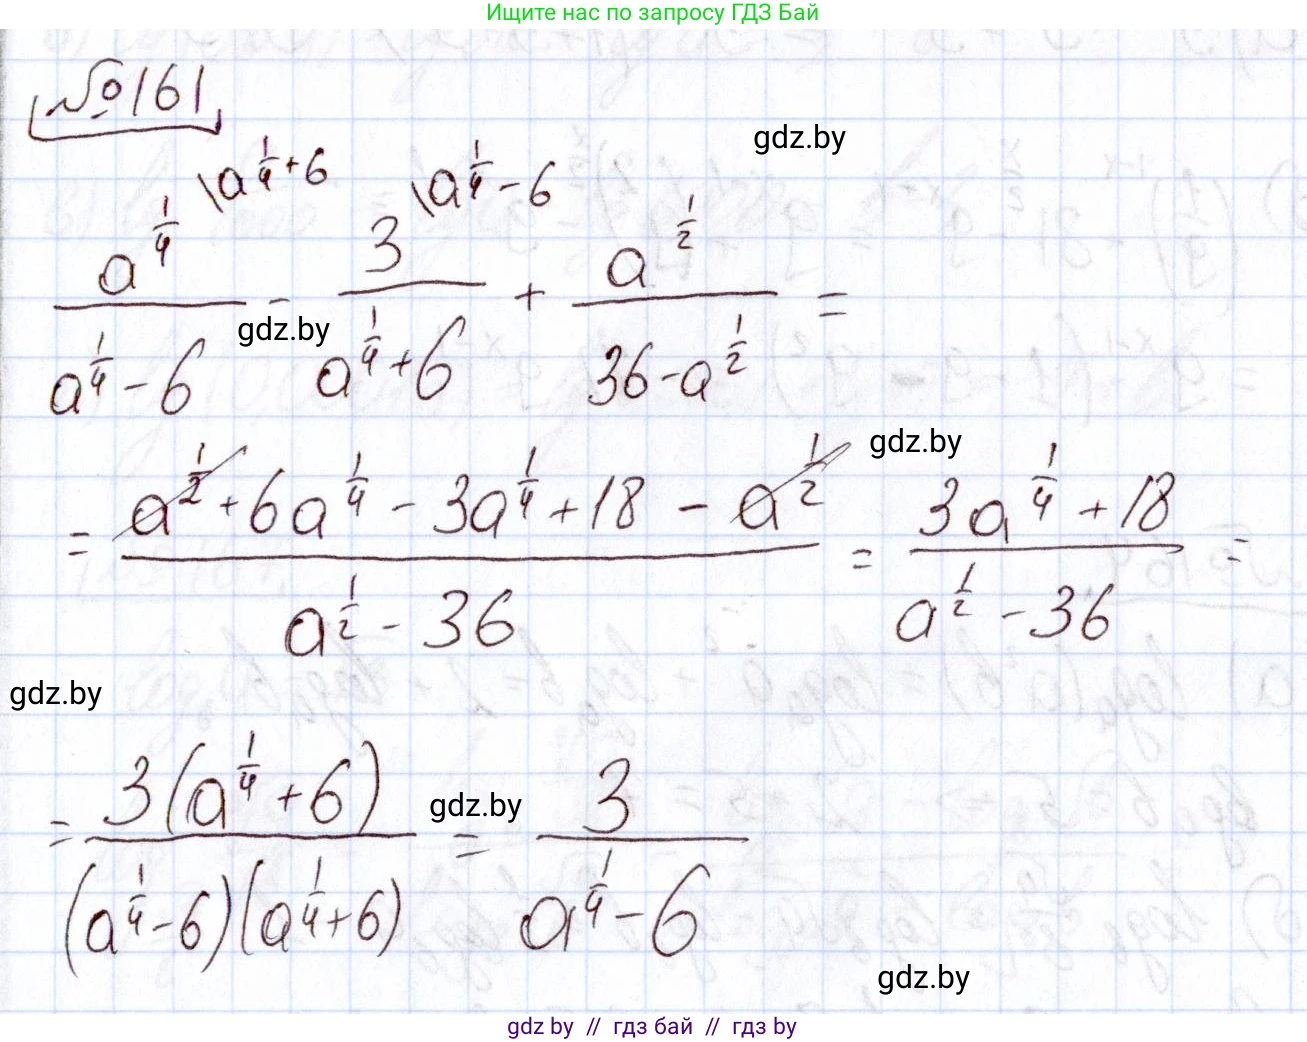 Ищите нас по запросу ГДЗ Бай
№161
gdz.by
\a^{1/4}+6 \a^{1/4}-6
a^{1/4}/(a^{1/4}-6) - 3/(a^{1/4}+6) + a^{1/2}/(36-a^{1/2}) =
gdz.by
gdz.by
= (a^{1/2}+6a^{1/4}-3a^{1/4}+18-a^{1/2})/(a^{1/2}-36) = (3a^{1/4}+18)/(a^{1/2}-36) =
gdz.by
= 3(a^{1/4}+6)/((a^{1/4}-6)(a^{1/4}+6)) = 3/(a^{1/4}-6)
gdz.by
gdz.by
gdz by // гдз бай // гдз by